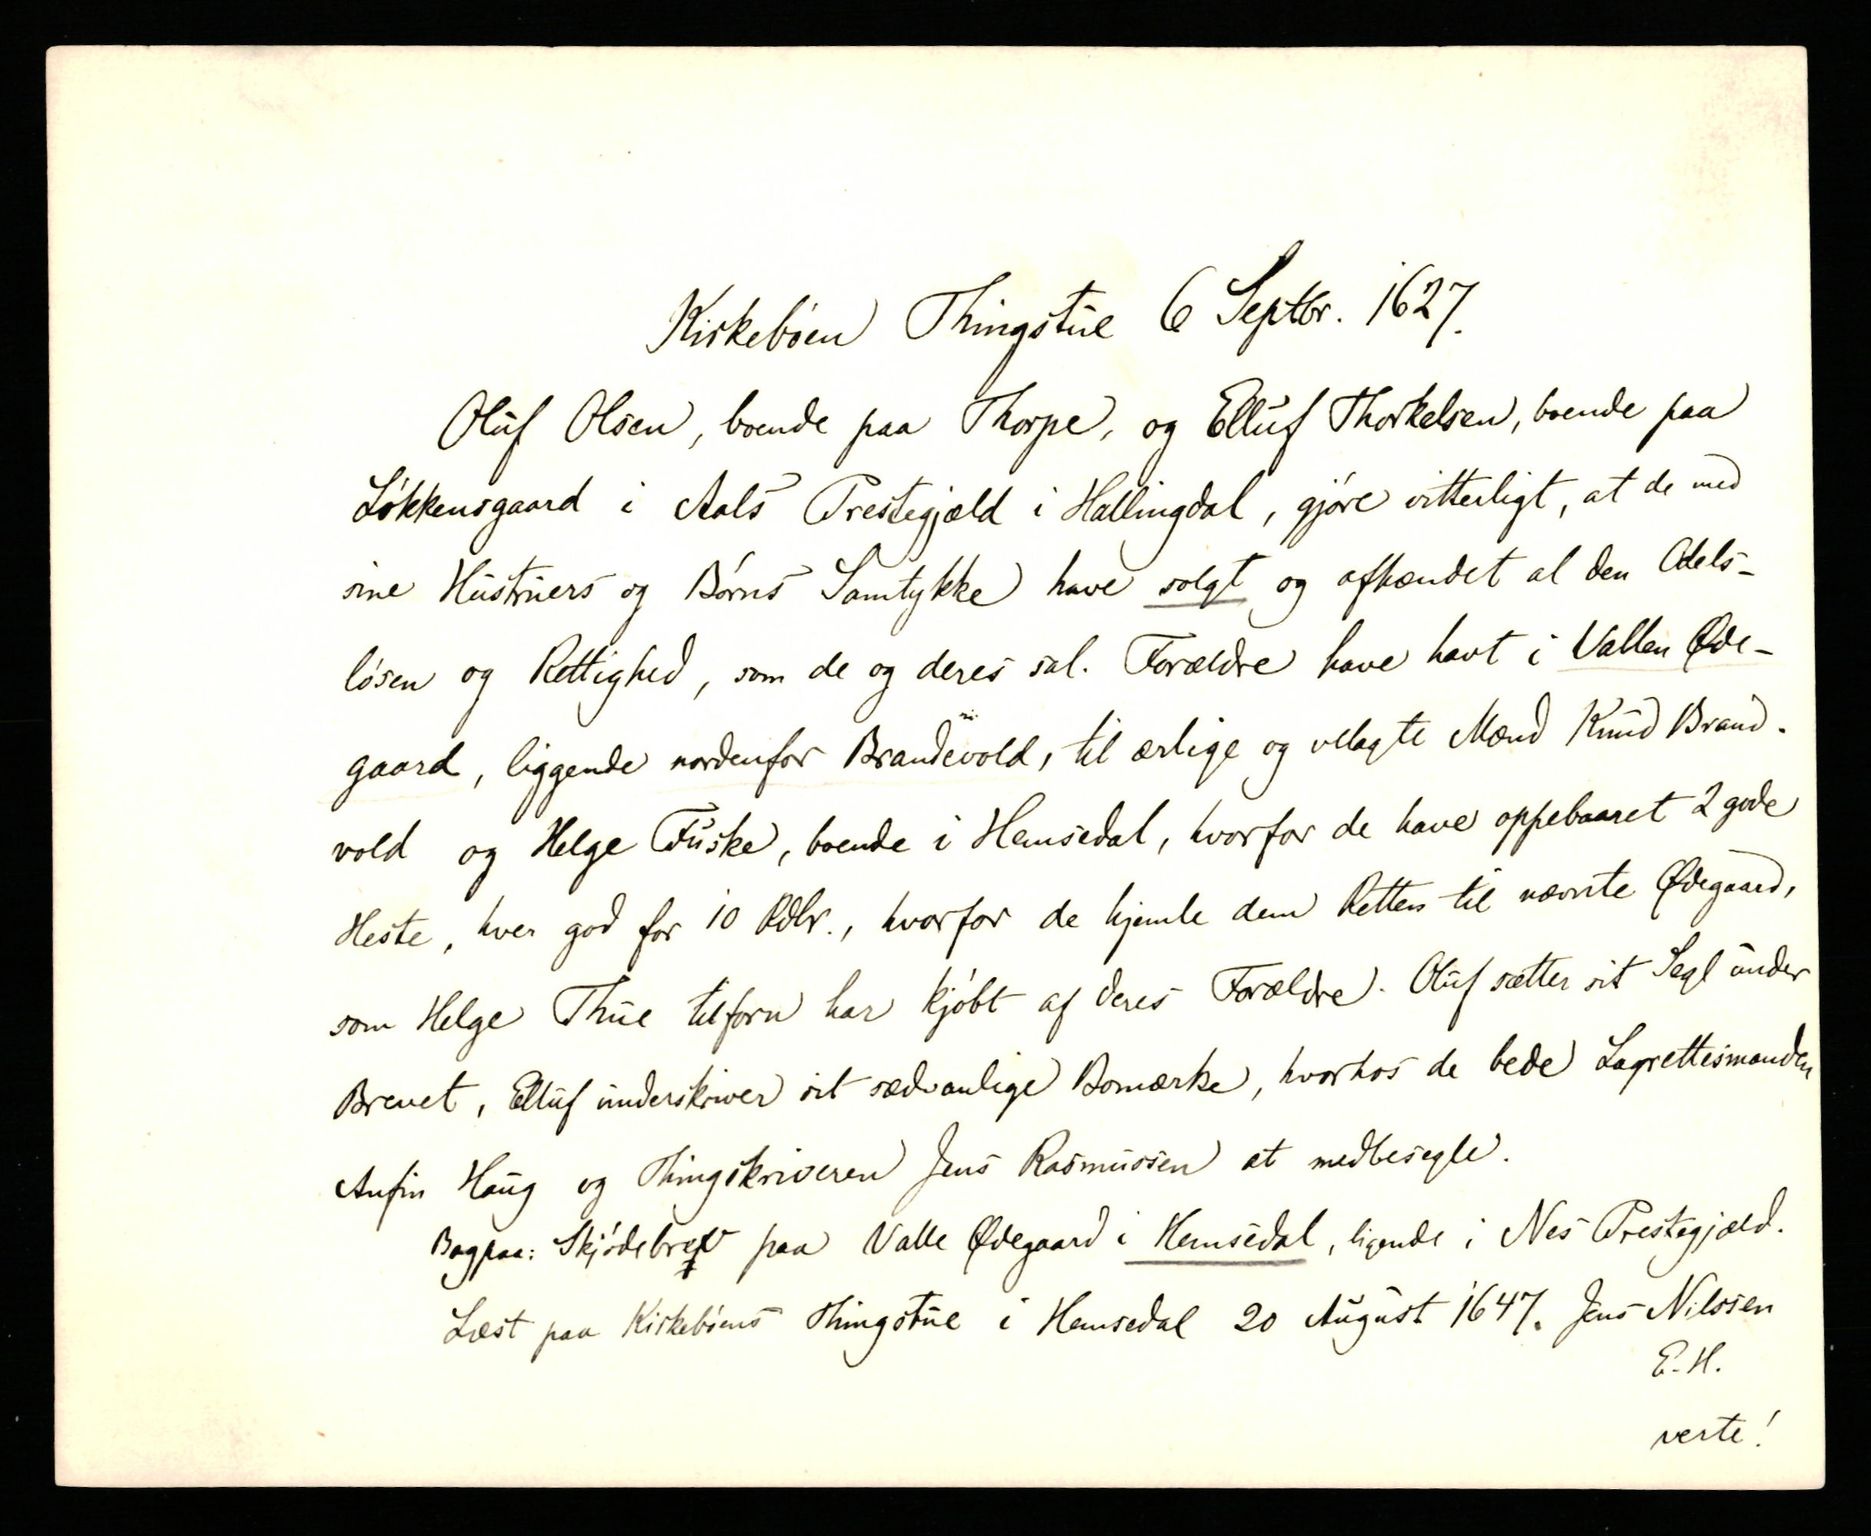 Kirkebøen Thingstue 6 Septbr. 1627.
Oluf Olsen, boende paa Thorpe, og Elluf Thorkelsen, boende paa
Løkkensgaard i Aals Prestegjæld i Hallingdal, gjøre vitterligt, at de med
sine Hustruers og Børns Samtykke have solgt og afhændet al den Odels-
løsen og Rettighed, som de og deres sal. Forældre have havt i Vallen Øde-
gaard, liggende nordenfor Brandevold, til ærlige og vellagte Mænd Knud Brand-
vold og Helge Fuske, boende i Hemsedal, hvorfor de have oppebaaret 2 gode
Heste, hver god for 10 Rdlr., hvorfor de hjemle dem Retten til nævnte Ødegaard,
som Helge Thue tilforn har kjøbt af deres Forældre. Oluf sætter sit Segl under
Brevet, Elluf underskriver sit sædvanlige Bomærke, hvorhos de bede Lagrettesmanden
Anfin Haug og Thingskriveren Jens Rasmussen at medbesegle.
Bagpaa: Skjødebrev paa Valle Ødegaard i Hemsedal, ligende i Nes Prestegjæld.
Læst paa Kirkebøens Thingstue i Hemsedal 20 August 1647. Jens Nilssen
E. H.
verte!